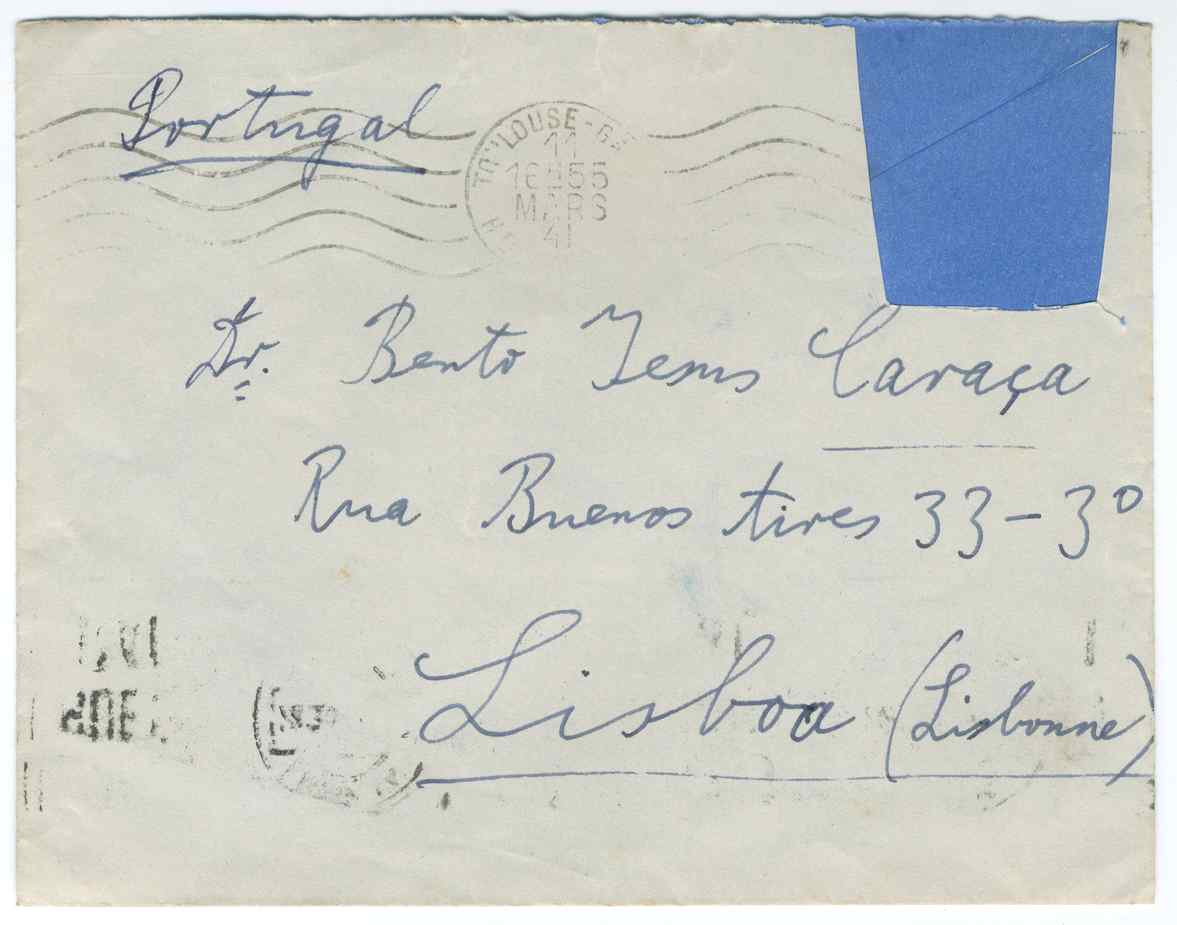 Portugal
TOULOUSE-GA
11
16H55
MARS
41
Dr. Bento Jesus Caraça
Rua Buenos Aires 33-3º
Lisboa (Lisbonne)